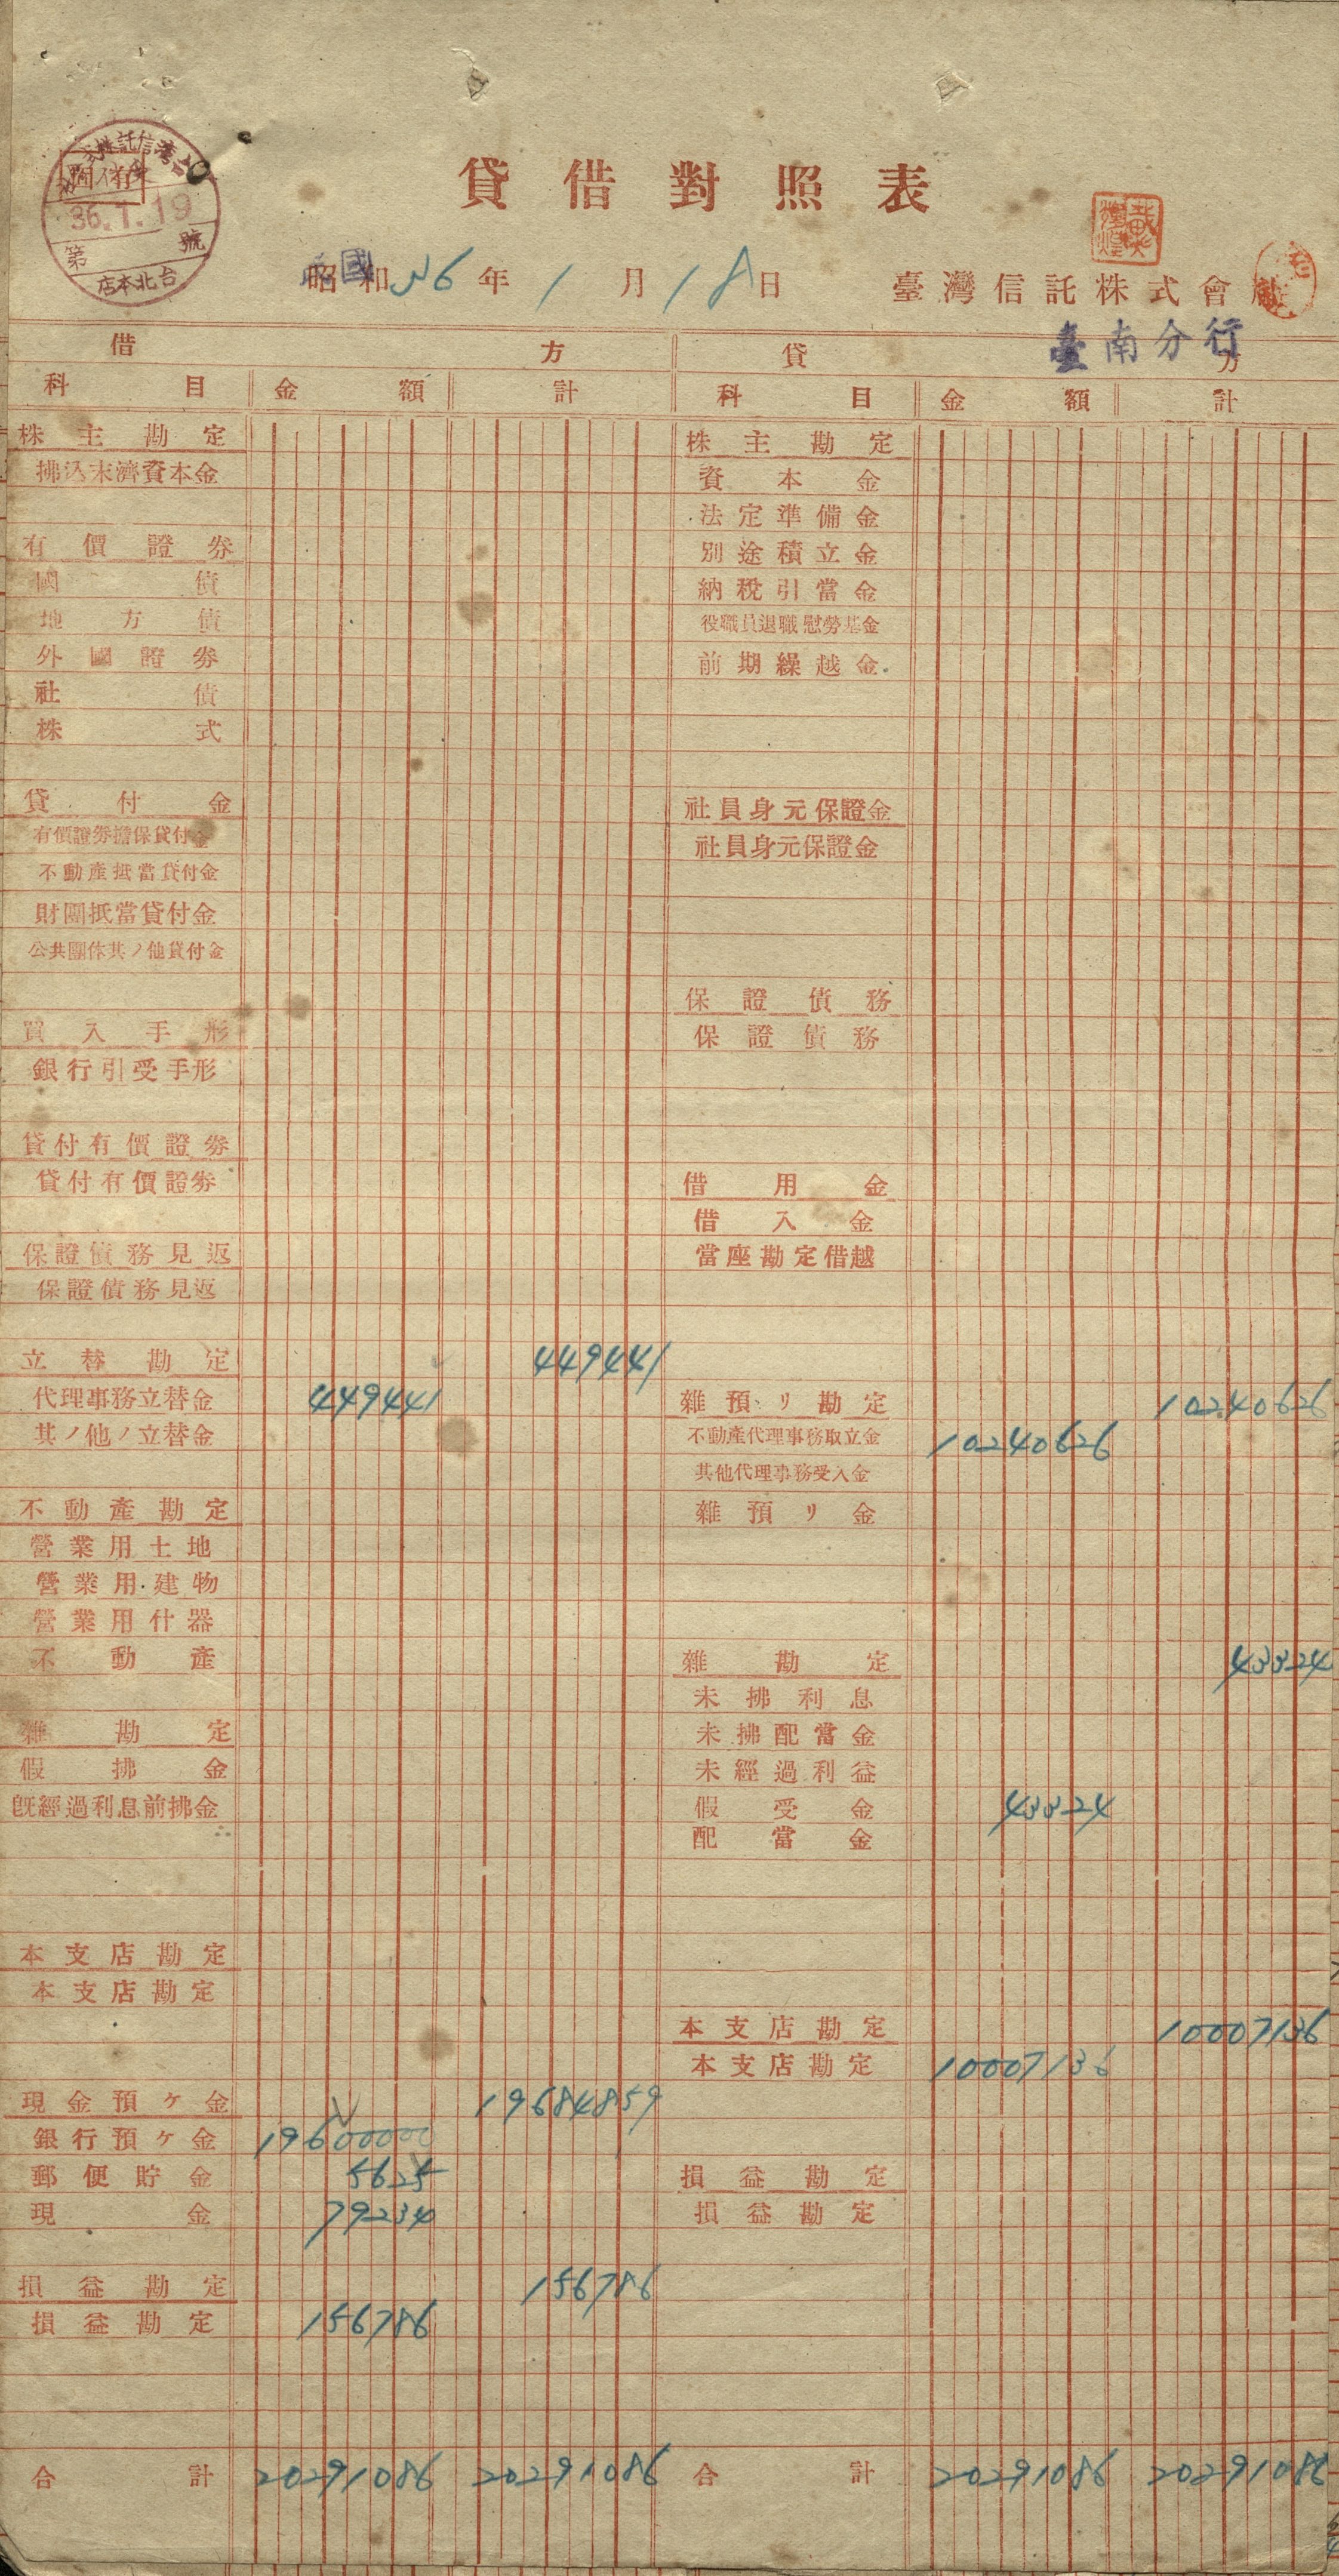 貸借對照表
台灣信託株式
36.1.19
第 號
台北本店
民國
昭和36年1月18日
臺灣信託株式會
臺南分行
借方
科目 金額 計
株主勘定
拂込未濟資本金
有價證券
國債
地方債
外國證券
社債
株式
貸付金
有價證券擔保貸付金
不動產抵當貸付金
財團抵當貸付金
公共團体其ノ他貸付金
買入手形
銀行引受手形
貸付有價證券
貸付有價證券
保證債務見返
保證債務見返
立替勘定 449441
代理事務立替金 449441
其ノ他ノ立替金
不動產勘定
營業用土地
營業用建物
營業用什器
不動產
雜勘定
假拂金
既經過利息前拂金
本支店勘定
本支店勘定
現金預ケ金 19684859
銀行預ケ金 19600000
郵便貯金 5625
現金 79234
損益勘定 156786
損益勘定 156786
合計 20291086 20291086
貸方
科目 金額 計
株主勘定
資本金
法定準備金
別途積立金
納稅引當金
役職員退職慰勞基金
前期繰越金
社員身元保證金
社員身元保證金
保證債務
保證債務
借用金
借入金
當座勘定借越
雜預リ勘定 10240626
不動產代理事務取立金 10240626
其他代理事務受入金
雜預リ金
雜勘定 43324
未拂利息
未拂配當金
未經過利益
假受金 43324
配當金
本支店勘定 10007136
本支店勘定 10007136
損益勘定
損益勘定
合計 20291086 20291086